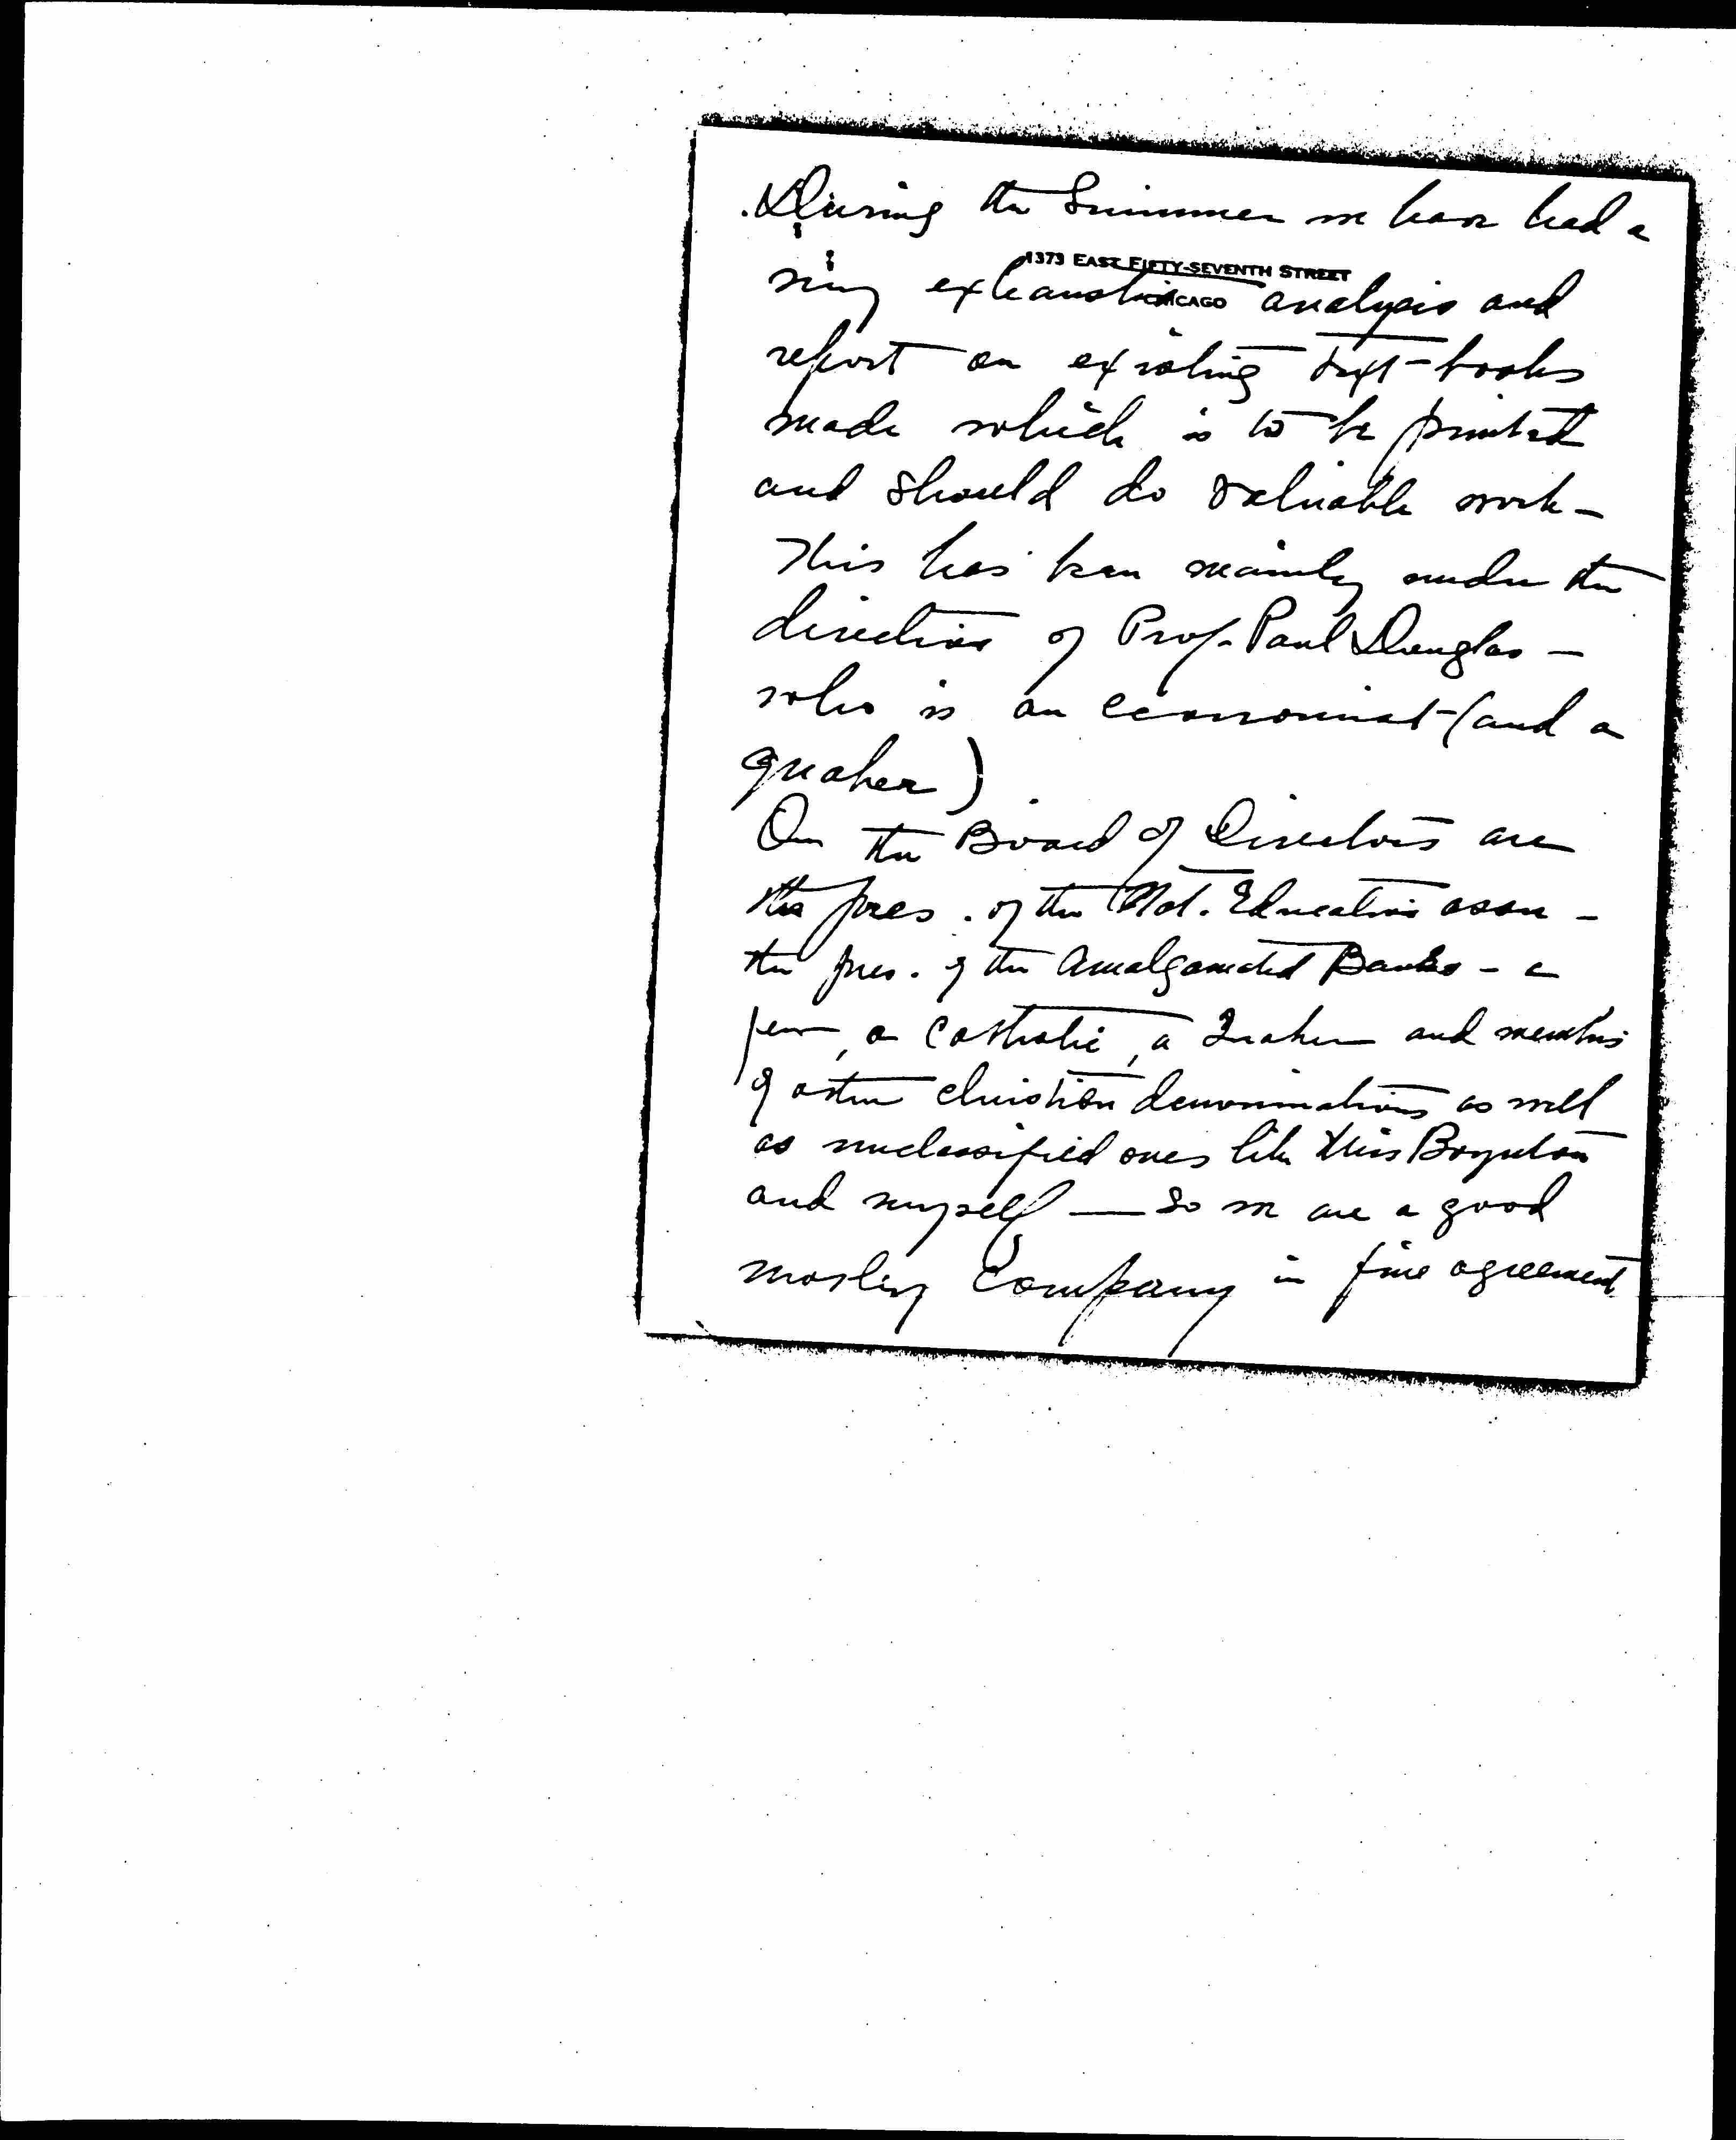 During the Summer we have had a
1373 EAST FIFTY-SEVENTH STREET
CHICAGO
very exhaustive analysis and
report on existing text-books
made which is to be printed
and should do valuable work -
This has been mainly under the
direction of Prof. Paul Douglas -
who is an economist - (and a
quaker)
On the Board of Directors are
the pres. of the Nat. Education assn -
the pres. of the Amalgamated Banks - a
jew, a Catholic, a Quaker and members
of other christian denominations as well
as unclassified ones like Miss Boynton
and myself — So we are a good
motley Company in fine agreement